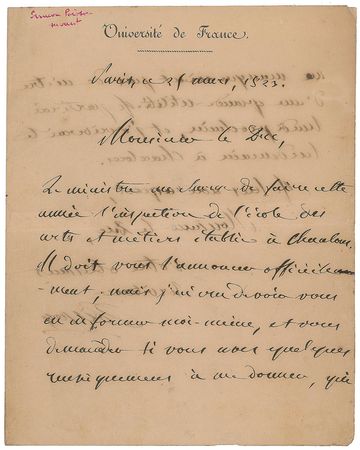 Université de France.
Paris, ce 25 mars, 1823.
Monsieur le Duc,
Le ministre me charge de faire cette
année l'inspection de l'école des
arts et métiers établie à Chaalons.
Il doit vous l'annoncer officielle-
ment; mais j'ai cru devoir vous
en informer moi-même, et vous
demander si vous avez quelques
renseignements à me donner, qui